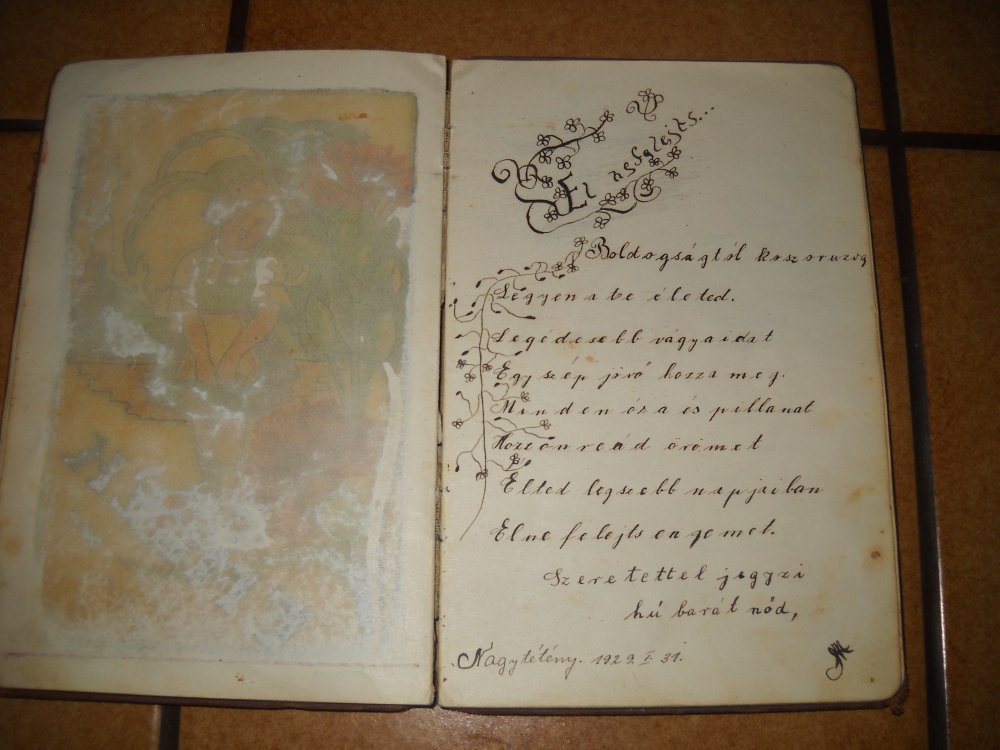 El nefelejts...
Boldogságtól koszoruzva
Légyen a te életed.
Legédesebb vágyaidat
Egy szép jövő hozza meg.
Minden óra és pillanat
Hozzon reád örömet
Élted legszebb napjaiban
El ne felejts engemet.
Szeretettel jegyzi
hú barát nőd,
Nagytétény. 1929. I. 31.